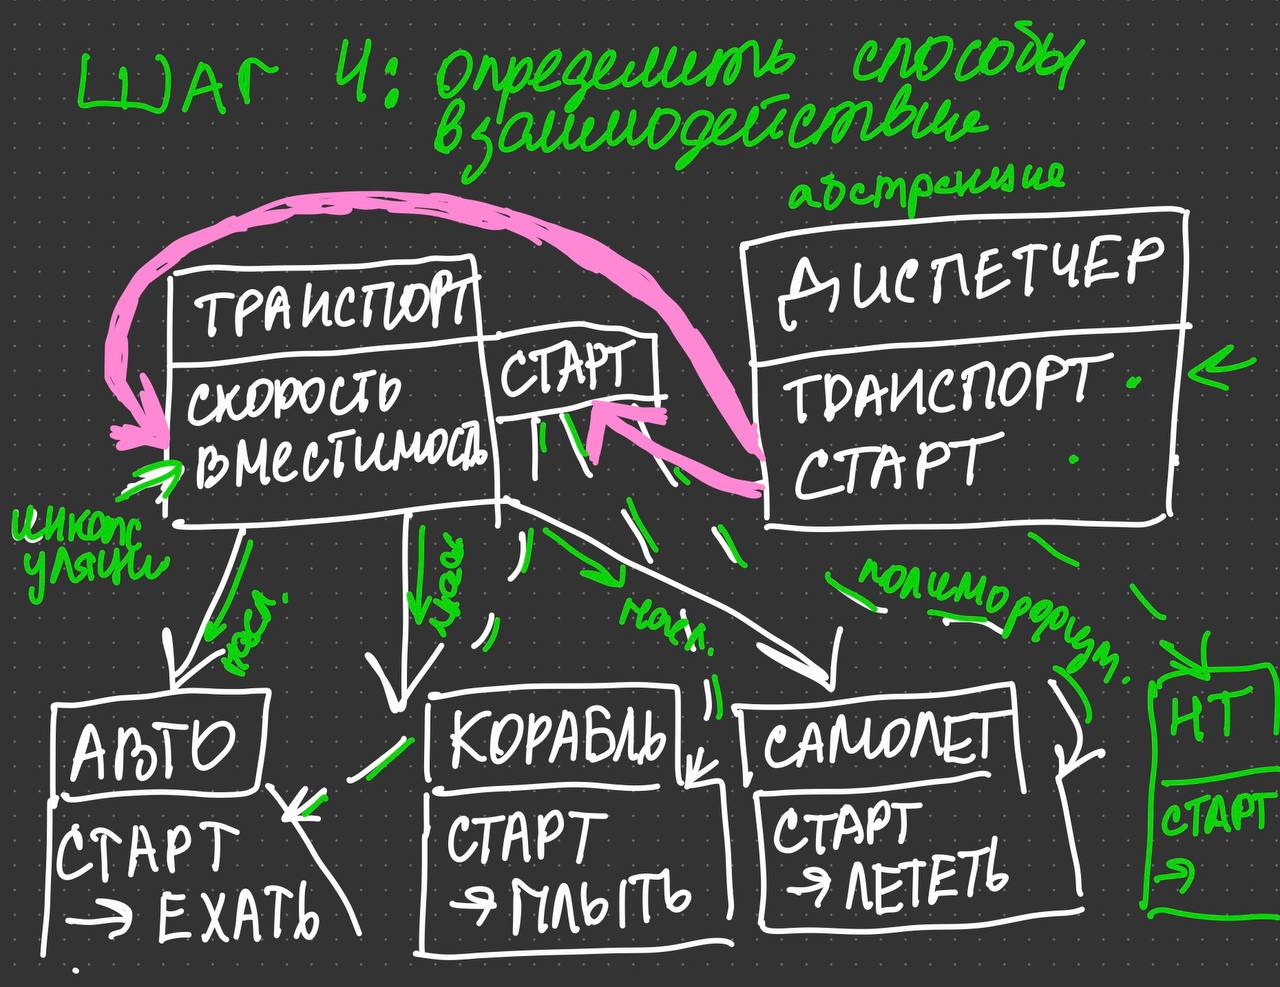 ШАГ 4: определить способы
взаимодействие
абстракцие
ТРАНСПОРТ
СКОРОСТЬ
ВМЕСТИМОСТЬ
СТАРТ
ДИСПЕТЧЕР
ТРАНСПОРТ
СТАРТ
инкапс
уляции
насл.
нас
насл.
полиморфизм.
АВТО
СТАРТ
→ ЕХАТЬ
КОРАБЛЬ
СТАРТ
→ ПЛЫТЬ
САМОЛЕТ
СТАРТ
→ ЛЕТЕТЬ
НТ
СТАРТ
→